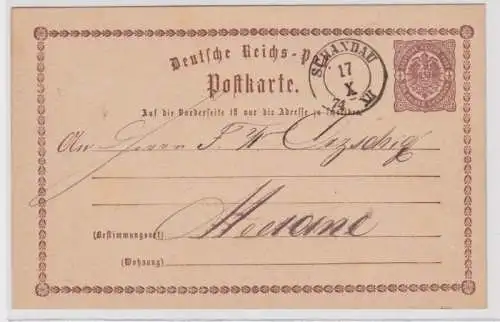 Deutsche Reichs-P
Postkarte.
SCHANDAU
17
X
74
XII
Auf die Vorderseite ist nur die Adresse zu
An Herrn F. W.
Meerane
(Bestimmungsort)
(Wohnung)